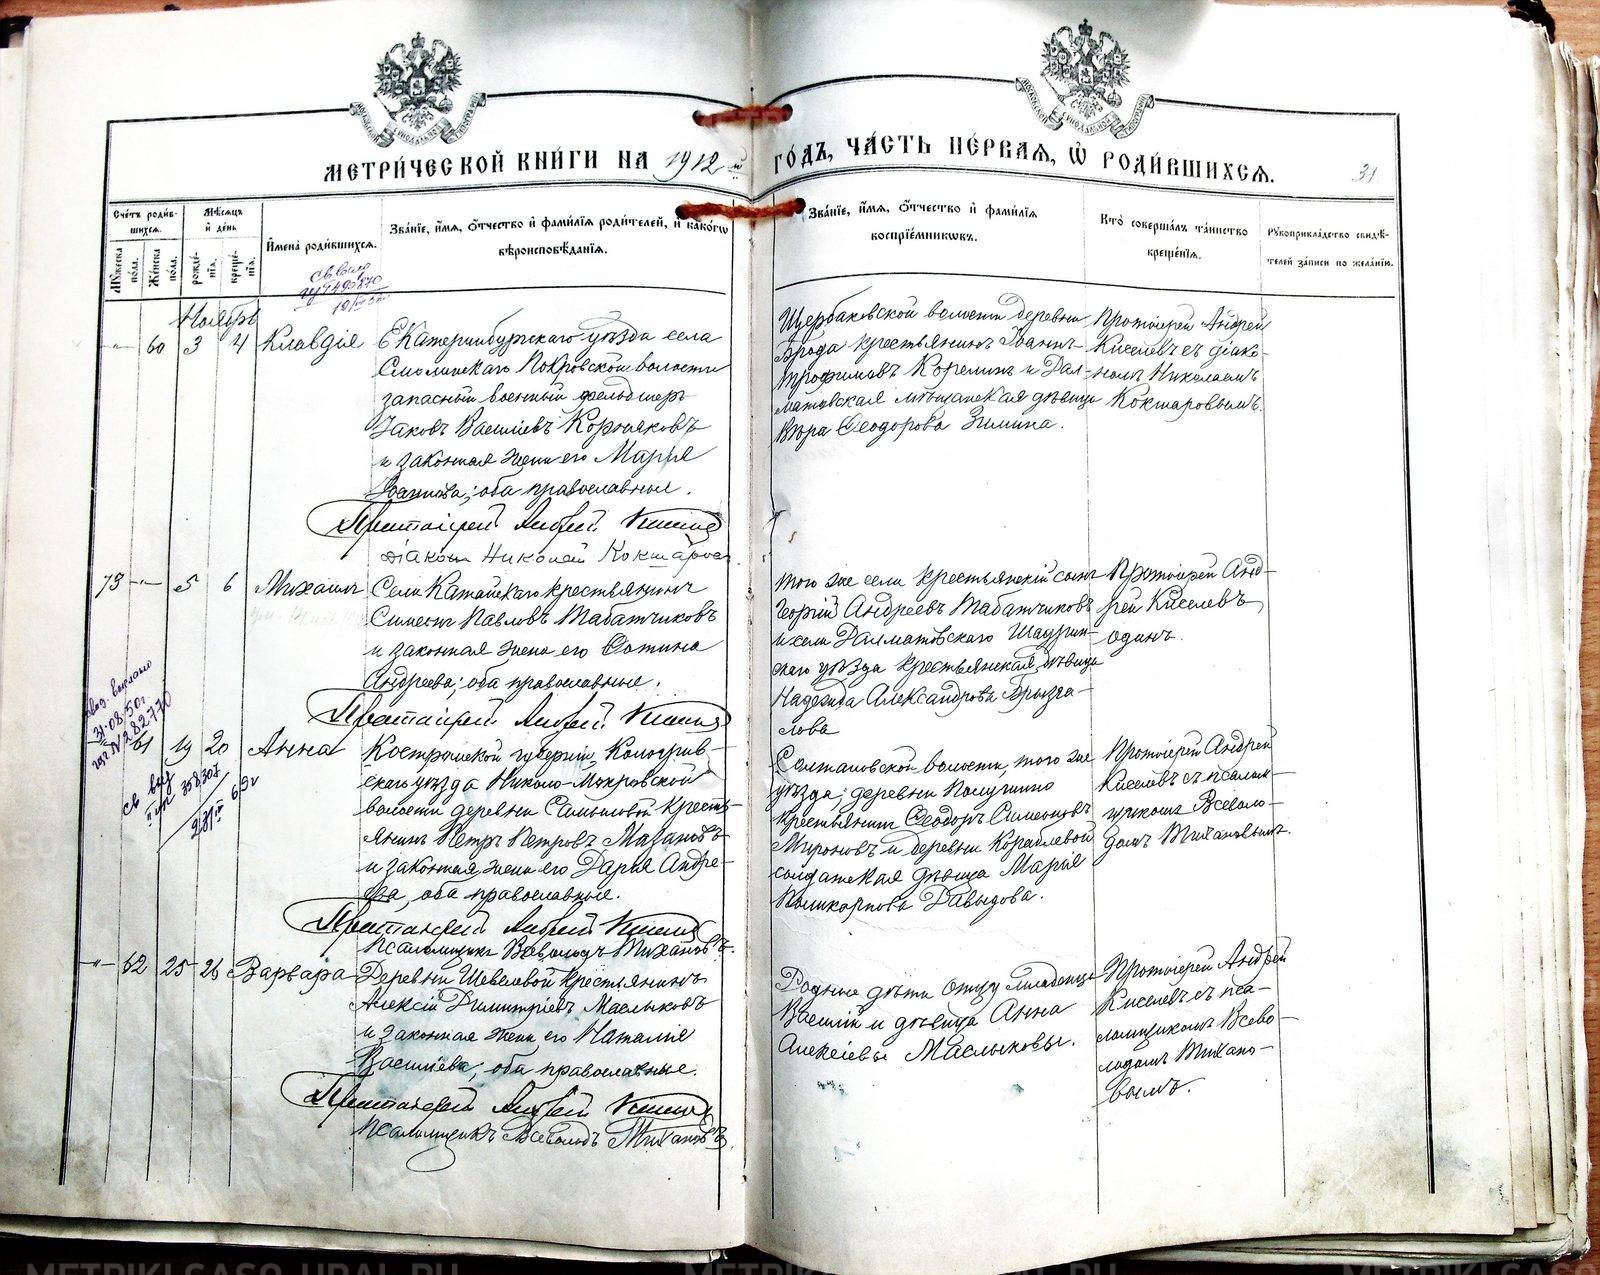 МЕТРИ́ЧЕСКОЙ КНИ́ГИ НА 1912 й ГО́ДЪ, ЧА́СТЬ ПЕ́РВАЯ, Ѡ РОДИ́ВШИХСЯ.
31
Сче́тъ роди́в-
шихся.
Мѣ́сяцъ
и де́нь
Му́жеска
по́ла.
Же́нска
по́ла.
рожде́-
нія.
креще́-
нія.
Имена̀ роди́вшихся.
Зва́ніе, и́мя, о́тчество и фами́лія роди́телей, и како́гѡ
вѣроисповѣ́данія.
Зва́ніе, и́мя, о́тчество и фами́лія
воспріе́мникѡвъ.
Кто̀ соверша́лъ та́инство
креще́нія.
Рукоприкла́дство свидѣ́-
телей за́писи по жела́нію.
Ноябрь
-"- 60 3 4 Клавдія
Екатеринбургскаго уѣзда села
Смолинскаго Покровской волости
запасный военный фельдшеръ
Іаковъ Василіевъ Корюковъ
и законная жена его Марія
Іоаннова; оба православные.
Протоіерей Андрей Киселев
Діаконъ Николай Кокшаров
Щербаковской волости деревни
Брода крестьянинъ Іоаннъ
Трофимовъ Корелинъ и Дал-
матовская мѣщанская дѣвица
Вѣра Ѳеодорова Зимина.
Протоіерей Андрей
Киселевъ съ діако-
номъ Николаемъ
Кокшаровымъ.
73 -"- 5 6 Михаилъ
Села Катайскаго крестьянинъ
Симеонъ Павловъ Табатчиковъ
и законная жена его Фотина
Андреева; оба православные.
Протоіерей Андрей Киселев
того же села крестьянскій сынъ
Георгій Андреевъ Табатчиковъ
и села Далматовскаго Шадрин-
скаго уѣзда крестьянская дѣвица
Надежда Александрова Брызга-
лова
Протоіерей Анд-
рей Киселевъ
одинъ.
31.08.50г
61 19 20 Анна
Костромской губерніи, Кологрив-
скаго уѣзда Николо-Мокровской
волости деревни Симоновой кресть-
янинъ Петръ Петровъ Мазановъ
и законная жена его Дарья Андре-
ева, оба православные.
Протоіерей Андрей Киселев
Псаломщикъ Всеволодъ Тихановъ.
Солтановской волости, того же
уѣзда; деревни Полушино
крестьянинъ Ѳеодоръ Симеоновъ
Мироновъ и деревни Кораблевой
солдатская дѣвица Марья
Поликарпова Давыдова.
Протоіерей Андрей
Киселевъ съ псалом-
щикомъ Всеволо-
домъ Тихановымъ.
-"- 62 25 26 Варвара
Деревни Шевелевой крестьянинъ
Алексій Димитріевъ Маслыковъ
и законная жена его Наталія
Васильева; оба православные.
Протоіерей Андрей Киселев
Псаломщикъ Всеволодъ Тихановъ.
Родные дѣти отцу младенца
Василій и дѣвица Анна
Алексіевы Маслыковы.
Протоіерей Андрей
Киселевъ съ пса-
ломщикомъ Всево-
лодомъ Тихано-
вымъ.